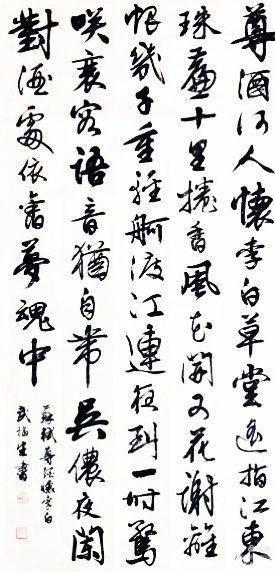 尊酒何人懷李白草堂遙指江東
珠簾十里捲香風花開又花謝離
恨幾千重輕舸渡江連夜到一時驚
咲衰容語音猶自帶吳儂夜闌
對酒處依舊夢魂中
蘇軾尊酒懷李白
武 生書